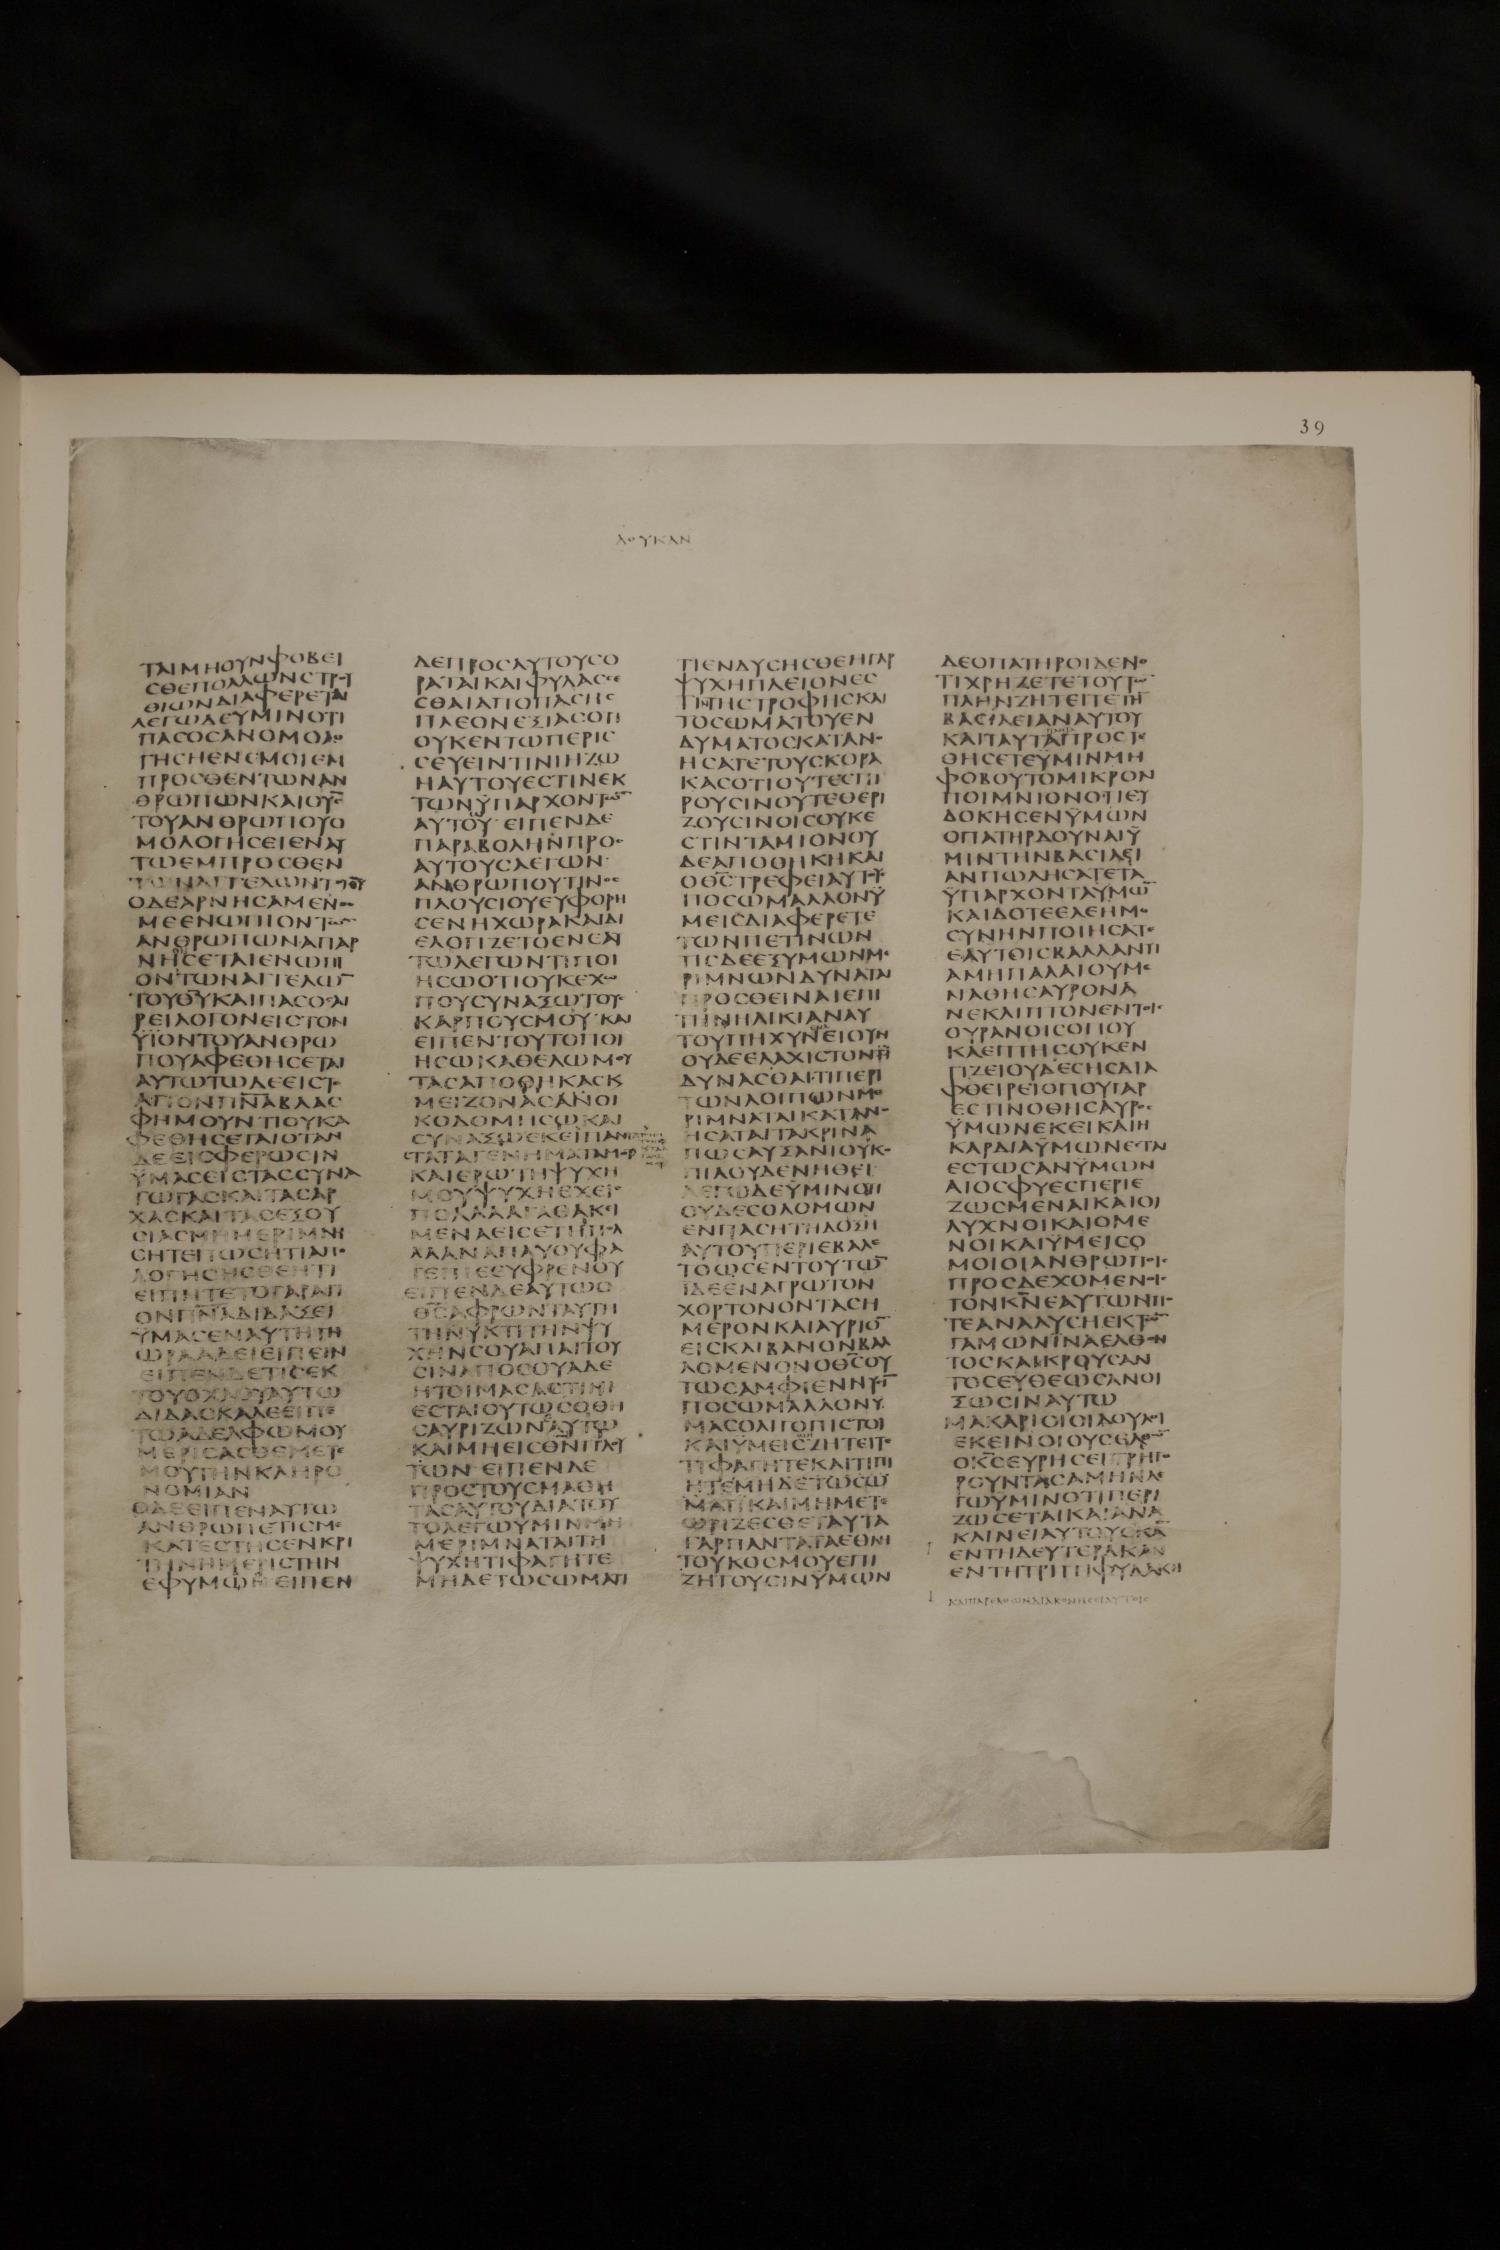 39
ΛΟΥΚΑΝ
ΤΑΙ ΜΗ ΟΥΝ ΦΟΒΕΙ
ϹΘΕ ΠΟΛΛΩΝ ΣΤΡΟΥ
ΘΙΩΝ ΔΙΑΦΕΡΕΤΑΙ
ΛΕΓΩ ΔΕ ΥΜΙΝ ΟΤΙ
ΠΑϹ ΟϹ ΑΝ ΟΜΟΛΟ
ΓΗϹΗ ΕΝ ΕΜΟΙ ΕΜ
ΠΡΟϹΘΕΝ ΤΩΝ ΑΝ
ΘΡΩΠΩΝ ΚΑΙ Ο ΥϹ
ΤΟΥ ΑΝΘΡΩΠΟΥ Ο
ΜΟΛΟΓΗϹΕΙ ΕΝ ΑΥ
ΤΩ ΕΜΠΡΟϹΘΕΝ
ΤΩΝ ΑΓΓΕΛΩΝ ΤΟΥ ΘΥ
Ο ΔΕ ΑΡΝΗϹΑΜΕΝΟϹ
ΜΕ ΕΝΩΠΙΟΝ ΤΩΝ
ΑΝΘΡΩΠΩΝ ΑΠΑΡ
ΝΗΘΗϹΕΤΑΙ ΕΝΩΠΙ
ΟΝ ΤΩΝ ΑΓΓΕΛΩΝ
ΤΟΥ ΘΥ ΚΑΙ ΠΑϹ ΟϹ ΑΙ
ΡΕΙ ΛΟΓΟΝ ΕΙϹ ΤΟΝ
ΥΙΟΝ ΤΟΥ ΑΝΘΡΩ
ΠΟΥ ΑΦΕΘΗϹΕΤΑΙ
ΑΥΤΩ ΤΩ ΔΕ ΕΙϹ Τ
ΑΓΙΟΝ ΠΝΑ ΒΛΑϹ
ΦΗΜΟΥΝΤΙ ΟΥΚ Α
ΦΕΘΗϹΕΤΑΙ ΟΤΑΝ
ΔΕ ΕΙϹΦΕΡΩϹΙΝ
ΥΜΑϹ ΕΙϹ ΤΑϹ ϹΥΝΑ
ΓΩΓΑϹ ΚΑΙ ΤΑϹ ΑΡ
ΧΑϹ ΚΑΙ ΤΑϹ ΕΞΟΥ
ϹΙΑϹ ΜΗ ΜΕΡΙΜΝΗ
ϹΗΤΕ ΠΩϹ Η ΤΙ ΑΠΟ
ΛΟΓΗϹΗϹΘΕ Η ΤΙ
ΕΙΠΗΤΕ ΤΟ ΓΑΡ ΑΓΙ
ΟΝ ΠΝΑ ΔΙΔΑΞΕΙ
ΥΜΑϹ ΕΝ ΑΥΤΗ ΤΗ
ΩΡΑ Α ΔΕΙ ΕΙΠΕΙΝ
ΕΙΠΕΝ ΔΕ ΤΙϹ ΕΚ
ΤΟΥ ΟΧΛΟΥ ΑΥΤΩ
ΔΙΔΑϹΚΑΛΕ ΕΙΠΕ
ΤΩ ΑΔΕΛΦΩ ΜΟΥ
ΜΕΡΙϹΑϹΘΕ ΜΕΤ
ΜΟΥ ΤΗΝ ΚΛΗΡΟ
ΝΟΜΙΑΝ
Ο ΔΕ ΕΙΠΕΝ ΑΥΤΩ
ΑΝΘΡΩΠΕ ΤΙϹ ΜΕ
ΚΑΤΕϹΤΗϹΕΝ ΚΡΙ
ΤΗΝ Η ΜΕΡΙϹΤΗΝ
ΕΦ ΥΜΩΝ ΕΙΠΕΝ
ΔΕ ΠΡΟϹ ΑΥΤΟΥϹ Ο
ΡΑΤΑΙ ΚΑΙ ΦΥΛΑϹϹΕ
ϹΘΑΙ ΑΠΟ ΠΑϹΗϹ
ΠΛΕΟΝΕΞΙΑϹ ΟΤΙ
ΟΥΚ ΕΝ ΤΩ ΠΕΡΙϹ
ϹΕΥΕΙΝ ΤΙΝΙ Η ΖΩ
Η ΑΥΤΟΥ ΕϹΤΙΝ ΕΚ
ΤΩΝ ΥΠΑΡΧΟΝΤΩΝ
ΑΥΤΟΥ ΕΙΠΕΝ ΔΕ
ΠΑΡΑΒΟΛΗΝ ΠΡΟϹ
ΑΥΤΟΥϹ ΛΕΓΩΝ
ΑΝΘΡΩΠΟΥ ΤΙΝΟϹ
ΠΛΟΥϹΙΟΥ ΕΥΦΟΡΗ
ϹΕΝ Η ΧΩΡΑ ΚΑΙ ΔΙ
ΕΛΟΓΙΖΕΤΟ ΕΝ ΕΑΥ
ΤΩ ΛΕΓΩΝ ΤΙ ΠΟΙ
ΗϹΩ ΟΤΙ ΟΥΚ ΕΧΩ
ΠΟΥ ϹΥΝΑΞΩ ΤΟΥϹ
ΚΑΡΠΟΥϹ ΜΟΥ ΚΑΙ
ΕΙΠΕΝ ΤΟΥΤΟ ΠΟΙ
ΗϹΩ ΚΑΘΕΛΩ ΜΟΥ
ΤΑϹ ΑΠΟΘΗΚΑϹ Κ
ΜΕΙΖΟΝΑϹ ΑΝΟΙ
ΚΟΔΟΜΗϹΩ ΚΑΙ
ϹΥΝΑΞΩ ΕΚΕΙ ΠΑΝ
ΤΑ ΤΑ ΓΕΝΗΜΑΤΑ ΜΟΥ
ΚΑΙ ΕΡΩ ΤΗ ΨΥΧΗ
ΜΟΥ ΨΥΧΗ ΕΧΕΙϹ
ΠΟΛΛΑ ΑΓΑΘΑ ΚΙ
ΜΕΝΑ ΕΙϹ ΕΤΗ ΠΟΛ
ΛΑ ΑΝΑΠΑΥΟΥ ΦΑ
ΓΕ ΠΙΕ ΕΥΦΡΕΝΟΥ
ΕΙΠΕΝ ΔΕ ΑΥΤΩ Ο
ΘϹ ΑΦΡΩΝ ΤΑΥΤΗ
ΤΗ ΝΥΚΤΙ ΤΗΝ ΨΥ
ΧΗΝ ϹΟΥ ΑΠΑΙΤΟΥ
ϹΙΝ ΑΠΟ ϹΟΥ Α ΔΕ
ΗΤΟΙΜΑϹΑϹ ΤΙΝΙ
ΕϹΤΑΙ ΟΥΤΩϹ Ο ΘΗ
ϹΑΥΡΙΖΩΝ ΑΥΤΩ
ΚΑΙ ΜΗ ΕΙϹ ΘΝ ΠΛΟΥ
ΤΩΝ ΕΙΠΕΝ ΔΕ
ΠΡΟϹ ΤΟΥϹ ΜΑΘΗ
ΤΑϹ ΑΥΤΟΥ ΔΙΑ ΤΟΥ
ΤΟ ΛΕΓΩ ΥΜΙΝ ΜΗ
ΜΕΡΙΜΝΑΤΑΙ ΤΗ
ΨΥΧΗ ΤΙ ΦΑΓΗΤΕ
ΜΗΔΕ ΤΩ ϹΩΜΑΤΙ
ΤΙ ΕΝΔΥϹΗϹΘΕ Η ΓΑΡ
ΨΥΧΗ ΠΛΕΙΟΝ ΕϹ
ΤΙΝ ΤΗϹ ΤΡΟΦΗϹ ΚΑΙ
ΤΟ ϹΩΜΑ ΤΟΥ ΕΝ
ΔΥΜΑΤΟϹ ΚΑΤΑΝΟ
ΗϹΑΤΕ ΤΟΥϹ ΚΟΡΑ
ΚΑϹ ΟΤΙ ΟΥΤΕ ϹΠΙ
ΡΟΥϹΙΝ ΟΥΤΕ ΘΕΡΙ
ΖΟΥϹΙΝ ΟΙϹ ΟΥΚ Ε
ϹΤΙΝ ΤΑΜΙΟΝ ΟΥ
ΔΕ ΑΠΟΘΗΚΗ ΚΑΙ
Ο ΘϹ ΤΡΕΦΕΙ ΑΥΤΟΥϹ
ΠΟϹΩ ΜΑΛΛΟΝ Υ
ΜΕΙϹ ΔΙΑΦΕΡΕΤΕ
ΤΩΝ ΠΕΤΙΝΩΝ
ΤΙϹ ΔΕ ΕΞ ΥΜΩΝ ΜΕ
ΡΙΜΝΩΝ ΔΥΝΑΤΑΙ
ΠΡΟϹΘΕΙΝΑΙ ΕΠΙ
ΤΗΝ ΗΛΙΚΙΑΝ ΑΥ
ΤΟΥ ΠΗΧΥΝ ΕΙ ΟΥΝ
ΟΥΔΕ ΕΛΑΧΙϹΤΟΝ ΤΙ
ΔΥΝΑϹΘΑΙ ΤΙ ΠΕΡΙ
ΤΩΝ ΛΟΙΠΩΝ ΜΕ
ΡΙΜΝΑΤΑΙ ΚΑΤΑΝΟ
ΗϹΑΤΑΙ ΤΑ ΚΡΙΝΑ
ΠΩϹ ΑΥΞΑΝΙ ΟΥ ΚΟ
ΠΙΑ ΟΥΔΕ ΝΗΘΕΙ
ΛΕΓΩ ΔΕ ΥΜΙΝ ΟΤΙ
ΟΥΔΕ ϹΟΛΟΜΩΝ
ΕΝ ΠΑϹΗ ΤΗ ΔΟΞΗ
ΑΥΤΟΥ ΠΕΡΙΕΒΑΛΕ
ΤΟ ΩϹ ΕΝ ΤΟΥΤΩΝ
Ι ΔΕ ΕΝ ΑΓΡΩ ΤΟΝ
ΧΟΡΤΟΝ ΟΝΤΑ ϹΗ
ΜΕΡΟΝ ΚΑΙ ΑΥΡΙΟΝ
ΕΙϹ ΚΛΙΒΑΝΟΝ ΒΑΛ
ΛΟΜΕΝΟΝ Ο ΘϹ ΟΥ
ΤΩϹ ΑΜΦΙΕΝΝΥϹΙ
ΠΟϹΩ ΜΑΛΛΟΝ Υ
ΜΑϹ ΟΛΙΓΟΠΙϹΤΟΙ
ΚΑΙ ΥΜΕΙϹ ΖΗΤΕΙΤΕ
ΤΙ ΦΑΓΗΤΕ ΚΑΙ ΤΙ ΠΙ
ΗΤΕ ΜΗΔΕ ΤΩ ϹΩ
ΜΑΤΙ ΚΑΙ ΜΗ ΜΕΤΕ
ΩΡΙΖΕϹΘΕ ΤΑΥΤΑ
ΓΑΡ ΠΑΝΤΑ ΤΑ ΕΘΝΗ
ΤΟΥ ΚΟϹΜΟΥ ΕΠΙ
ΖΗΤΟΥϹΙΝ ΥΜΩΝ
ΔΕ Ο ΠΑΤΗΡ ΟΙΔΕΝ Ο
ΤΙ ΧΡΗΖΕΤΕ ΤΟΥΤΩΝ
ΠΛΗΝ ΖΗΤΕΙΤΕ ΤΗΝ
ΒΑϹΙΛΕΙΑΝ ΑΥΤΟΥ
ΚΑΙ ΤΑΥΤΑ ΠΡΟϹΤΕ
ΘΗϹΕΤΕ ΥΜΙΝ ΜΗ
ΦΟΒΟΥ ΤΟ ΜΙΚΡΟΝ
ΠΟΙΜΝΙΟΝ ΟΤΙ ΕΥ
ΔΟΚΗϹΕΝ ΥΜΩΝ
Ο ΠΑΤΗΡ ΔΟΥΝΑΙ Υ
ΜΙΝ ΤΗΝ ΒΑϹΙΛΕΙ
ΑΝ ΠΩΛΗϹΑΤΕ ΤΑ
ΥΠΑΡΧΟΝΤΑ ΥΜΩΝ
ΚΑΙ ΔΟΤΕ ΕΛΕΗΜΟ
ϹΥΝΗΝ ΠΟΙΗϹΑΤΕ
ΕΑΥΤΟΙϹ ΒΑΛΛΑΝΤΙ
Α ΜΗ ΠΑΛΑΙΟΥΜΕ
ΝΑ ΘΗϹΑΥΡΟΝ Α
ΝΕΚΛΙΠΤΟΝ ΕΝ ΤΟΙϹ
ΟΥΡΑΝΟΙϹ ΟΠΟΥ
ΚΛΕΠΤΗϹ ΟΥΚ ΕΝ
ΓΙΖΕΙ ΟΥΔΕ ϹΗϹ ΔΙΑ
ΦΘΕΙΡΕΙ ΟΠΟΥ ΓΑΡ
ΕϹΤΙΝ Ο ΘΗϹΑΥΡΟϹ
ΥΜΩΝ ΕΚΕΙ ΚΑΙ Η
ΚΑΡΔΙΑ ΥΜΩΝ ΕϹΤΑΙ
ΕϹΤΩϹΑΝ ΥΜΩΝ
ΑΙ ΟϹΦΥΕϹ ΠΕΡΙΕ
ΖΩϹΜΕΝΑΙ ΚΑΙ ΟΙ
ΛΥΧΝΟΙ ΚΑΙΟΜΕ
ΝΟΙ ΚΑΙ ΥΜΕΙϹ Ο
ΜΟΙΟΙ ΑΝΘΡΩΠΟΙϹ
ΠΡΟϹΔΕΧΟΜΕΝΟΙϹ
ΤΟΝ ΚΝ ΕΑΥΤΩΝ ΠΟ
ΤΕ ΑΝΑΛΥϹΗ ΕΚ ΤΩΝ
ΓΑΜΩΝ ΙΝΑ ΕΛΘΟΝ
ΤΟϹ ΚΑΙ ΚΡΟΥϹΑΝ
ΤΟϹ ΕΥΘΕΩϹ ΑΝΟΙ
ΞΩϹΙΝ ΑΥΤΩ
ΜΑΚΑΡΙΟΙ ΟΙ ΔΟΥΛΟΙ
ΕΚΕΙΝΟΙ ΟΥϹ ΕΛΘΩΝ
Ο ΚϹ ΕΥΡΗϹΕΙ ΓΡΗΓΟ
ΡΟΥΝΤΑϹ ΑΜΗΝ ΛΕ
ΓΩ ΥΜΙΝ ΟΤΙ ΠΕΡΙ
ΖΩϹΕΤΑΙ ΚΑΙ ΑΝΑ
ΚΛΙΝΕΙ ΑΥΤΟΥϹ ΚΑ
ΕΝ ΤΗ ΔΕΥΤΕΡΑ ΚΑΝ
ΕΝ ΤΗ ΤΡΙΤΗ ΦΥΛΑΚΗ
ΚΑΙ ΠΑΡΕΛΘΩΝ ΔΙΑΚΟΝΗϹΕΙ ΑΥΤΟΙϹ